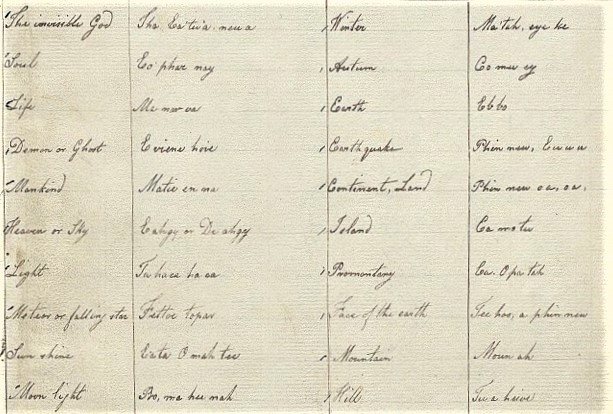 The invisible God Tha. Ea tu'a. new a Winter Ma'tah, eye ke
Soul Eo phar nay Autum Co mew ey
Life Me mor oa Earth Eb bo
Demon or Ghost E viene hoie Earthquake Phin new, E u w u
Mankind Matie en na Continent, Land Phin new oa, oa,
Heaven or Sky Ealigy or De aligy Island Ca mo tu
Light Ta hace ha ea Promontary Ea. O pa tah
Meteor or falling star Fettoe topar Face of the earth Tee hoo, a phin new
Sun shine Eata O mah tee Mountain Moun ah
Moon light Bo, ma hee mah Hill Tu a heive